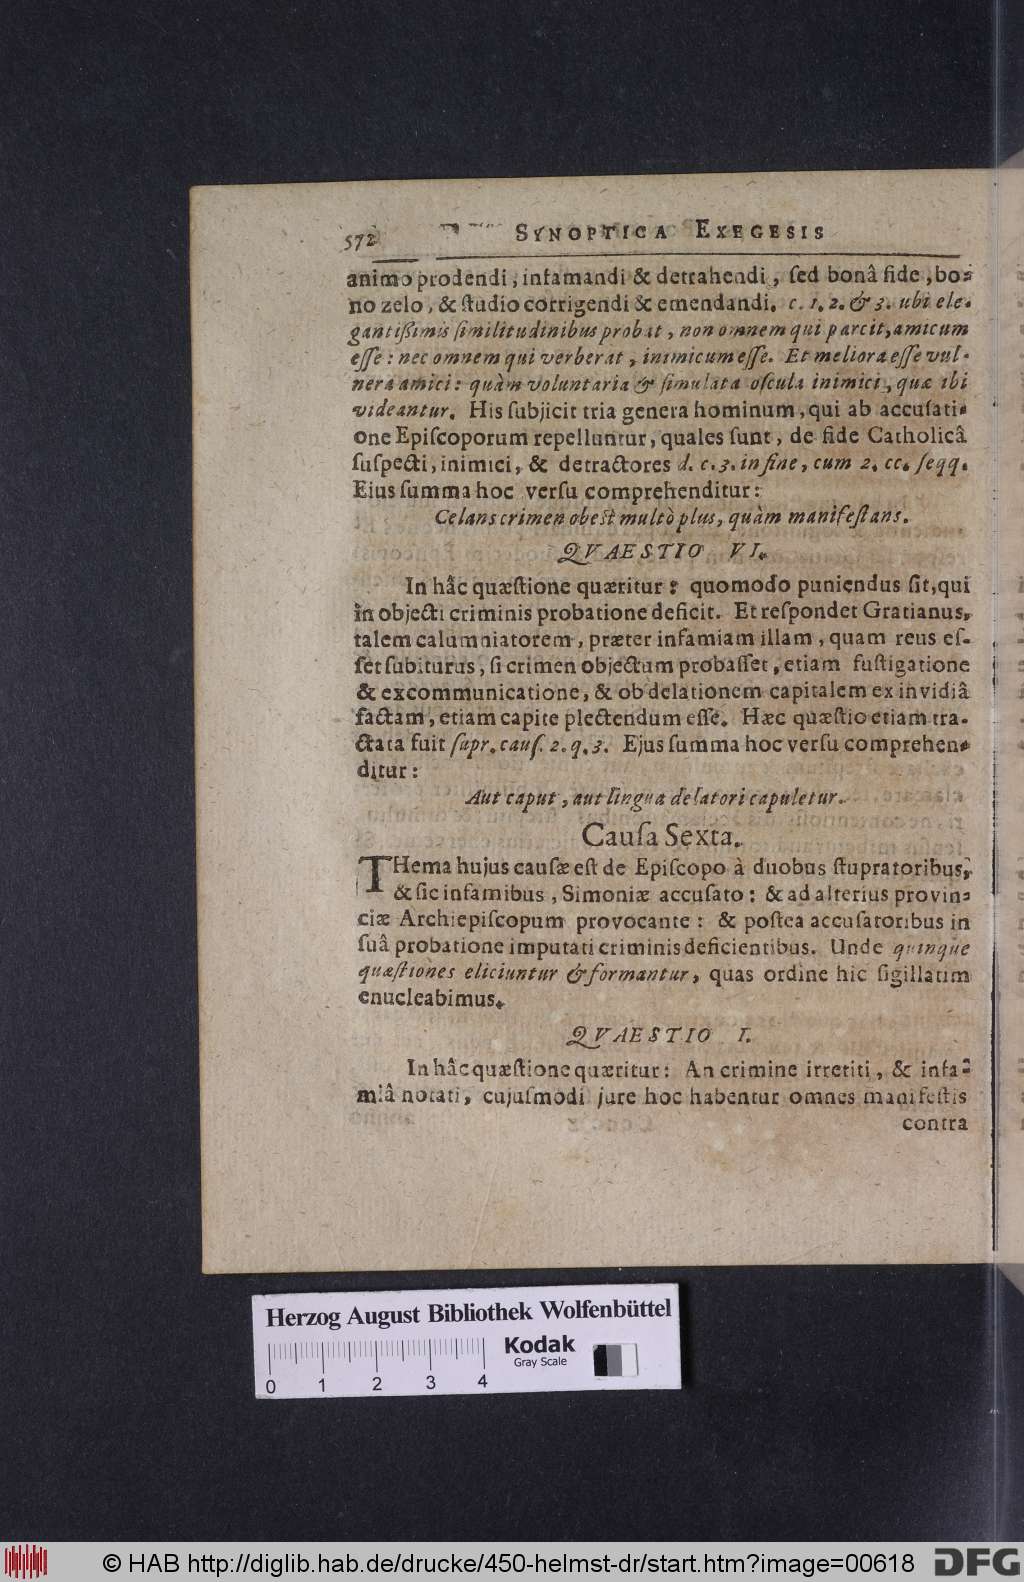 572 SYNOPTICA EXEGESIS
animo prodendi, infamandi & detrahendi, ſed bonâ fide, bo-
no zelo, & ſtudio corrigendi & emendandi. c. 1. 2. & 3. ubi ele-
gantißimis ſimilitudinibus probat, non omnem qui parcit, amicum
eſſe: nec omnem qui verberat, inimicum eſſe. Et meliora eſſe vul-
nera amici: quàm voluntaria & ſimulata oſcula inimici, quæ ibi
videantur. His ſubjicit tria genera hominum, qui ab accuſati-
one Epiſcoporum repelluntur, quales ſunt, de fide Catholicâ
ſuſpecti, inimici, & detractores d. c. 3. in fine, cum 2. cc. ſeqq.
Eius ſumma hoc verſu comprehenditur:
Celans crimen obest multò plus, quàm manifeſtans.
QVAESTIO VI.
In hâc quæſtione quæritur: quomodo puniendus ſit, qui
in objecti criminis probatione deficit. Et reſpondet Gratianus,
talem calumniatorem, præter infamiam illam, quam reus eſ-
ſet ſubiturus, ſi crimen objectum probaſſet, etiam fuſtigatione
& excommunicatione, & ob delationem capitalem ex invidiâ
factam, etiam capite plectendum eſſe. Hæc quæſtio etiam tra-
ctata fuit ſupr. cauſ. 2. q. 3. Ejus ſumma hoc verſu comprehen-
ditur:
Aut caput, aut lingua delatori capuletur.
Cauſa Sexta.
THema hujus cauſæ eſt de Epiſcopo à duobus ſtupratoribus,
& ſic infamibus, Simoniæ accuſato: & ad alterius provin-
ciæ Archiepiſcopum provocante: & poſtea accuſatoribus in
ſuâ probatione imputati criminis deficientibus. Unde quinque
quæſtiones eliciuntur & formantur, quas ordine hic ſigillatim
enucleabimus.
QVAESTIO I.
In hâc quæſtione quæritur: An crimine irretiti, & infa-
miâ notati, cujuſmodi jure hoc habentur omnes manifeſtis
contra
Herzog August Bibliothek Wolfenbüttel
Kodak
Gray Scale
0 1 2 3 4
© HAB http://diglib.hab.de/drucke/450-helmst-dr/start.htm?image=00618 DFG